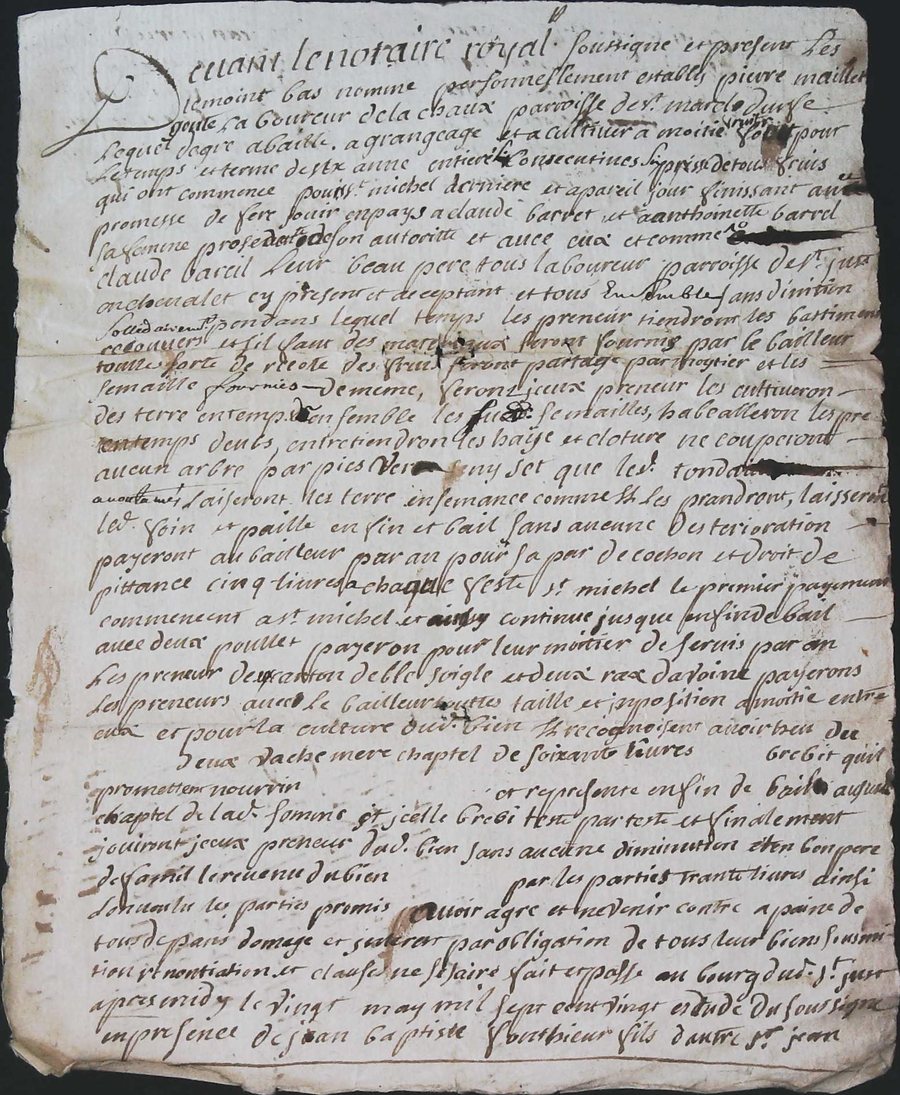 Devant le notaire royal soussigne et present Les
temoint bas nomme personnellement establs pierre maillet
goute Laboureur de la chaux parroisse de st marcl durfe
Lequel degre abaille. a grangeage et a cultiver a moitie fruit pour
Le temps et terme de six anne entiere Consecutives prisse de tous fruis
qui ont commence pour st michel derniere et a pareil jour finissant avec
promesse de fere jouir en pays a claude barret et a anthoinette barrel
sa femme de son autoritte et avec eux et comme
claude bareil Leur beau pere tous laboureur parroisse de st just
en chevalet cy present et acceptant et tous Ensemble sans division
sollidairemt pendans lequel temps les preneur tiendront les battimens
recouvers et sil faut des materiaux seront fournis par le bailleur
toutte sorte de recole des fruis seront partage par moytier et les
semaille fournies De meme, seront jeeux preneur les cultiveron
des terre en temps ensemble les semailles, habealleron les pre
en temps deues, entretiendron les haye et cloture ne couperont
aucun arbre par pies ny set que led.
Laiseront les terre ensemance comme Il Les prandront, laisseront
led. foin et paille en fin et bail sans aucune Desterioration
payeront au bailleur par an pour sa par de cochon et droit de
pittance cinq livres a chaque feste st michel le premier payement
commencent a st michel et ainsy continue jusque en fin de bail
avec deux poullet payeron pour leur moitier de servis par an
Les preneur deux carton de ble soigle et deux rax davoine payerons
Les preneurs avec Le bailleur touttes taille et inposition a moitie entre
eux et pour la culture dud. bien Il recognoisent avoir heu du
deux vache mere chaptel de soixante livres brebit quil
promettent nourrin et represente en fin de bail
chaptel de lad. somme et jcelle brebi teste par teste et finalement
jouiront jeeux preneur dud. bien sans aucune diminution et en bon pere
de famil le revenu du bien par les parties trante livres ainsi
Lon voulu les parties promis avoir agre et ne venir contre a paine de
tous depans domage et par obligation de tous leur biens sousmi
tion renontiation et clause nesesaire fait et passe au bourg dud. st just
apres midy le vingt may mil sept cent vingt estude du soussigne
en presence de jean baptiste fonthieur fils dautre st jean